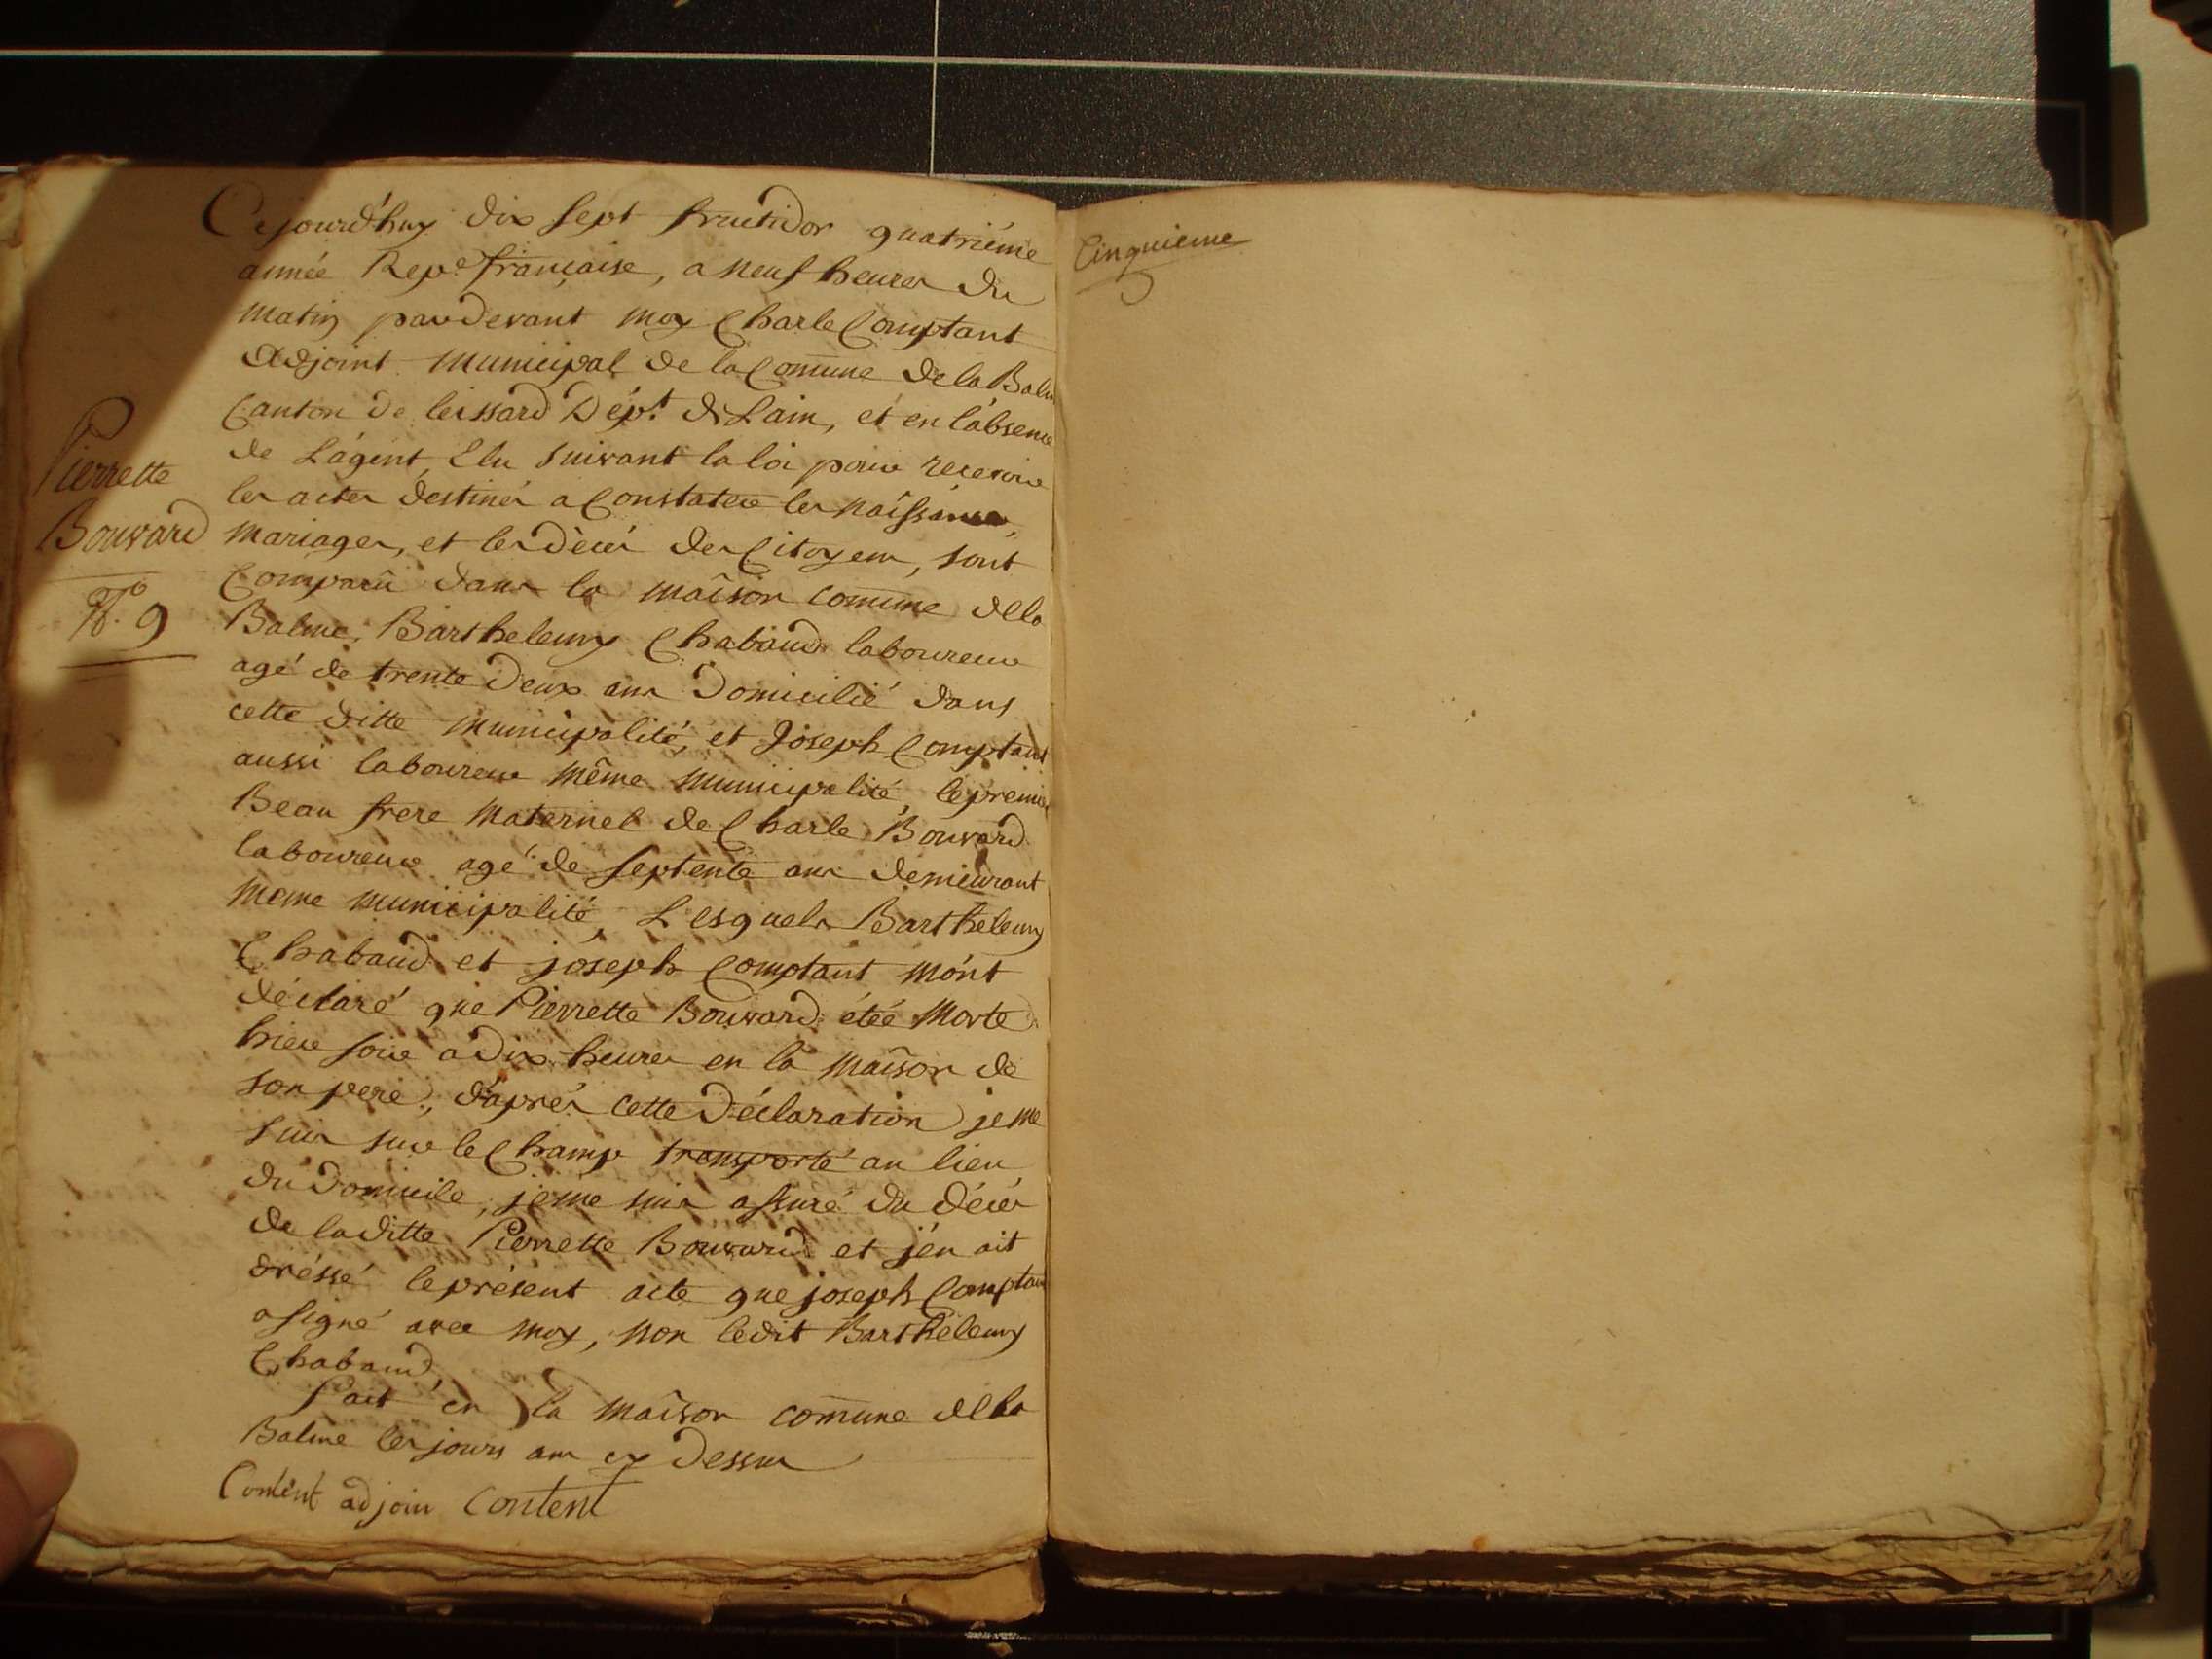 Cejourd'huy dix sept fructidor quatriéme
année Repe. française, a neuf heures du
matin pardevant moy Charle Comptant
Adjoint municipal de la Com̄une de la Balm
Canton de leissard Dépt. de Lain, et en l'absence
de L'agent, Elu suivant la loi pour recevoir
les actes destinés a Constater les naissances,
mariages, et les décés des Citoyens, sont
Comparû dans la maison com̄une dela
Balme, Barthelemy Chabaud laboureur
agé de trente deux ans Domicilié dans
cette ditte municipalité, et Joseph Comptant
aussi laboureur même municipalité, le premier
Beau frere maternel de Charle Bouvard
laboureur agé de septente ans demeurant
meme municipalité, Lesquels Barthelemy
Chabaud et joseph Comptant m'ont
déclaré que Pierrette Bouvard étée morte
hier soir a dix heures en la maison de
son pere, d'aprés cette Déclaration je me
suis sur le Champ transporté au lieu
du Domicile, je me suis assuré du décés
de la ditte Pierrette Bouvard et j'en ait
dréssé le présent acte que joseph Comptan
a signé avec moy, non ledit Barthélemy
Chabaud,
Fait en la maison com̄une dela
Balme les jours ans cy dessus
Contént adjoin Content
Pierrette
Bouvard
No. 9
Cinquieme